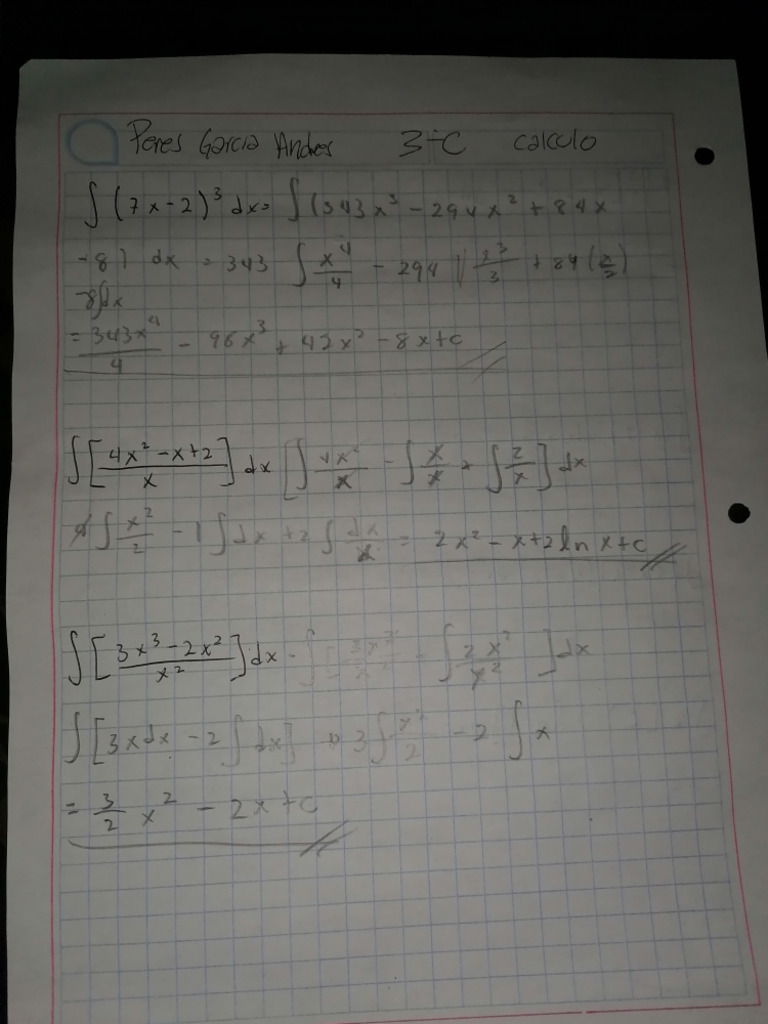 Peres Garcia Andres 3-C calculo
∫ (7x-2)³ dx = ∫(343x³ - 294x² + 84x
-8) dx = 343 ∫ x⁴/4 - 294 ∫ x³/3 + 84 (x/2)
-8∫dx
= 343x⁴/4 - 96x³ + 42x² - 8x+c
∫ [4x²-x+2/x] dx [∫ 4x²/x - ∫ x/x + ∫ 2/x] dx
4 ∫ x²/2 - 1 ∫ dx + 2 ∫ dx/x = 2x² - x+2 ln x+c
∫ [3x³-2x²/x²] dx - ∫ [3x³/x² - ∫ 2x²/x² ] dx
∫ [3xdx - 2 ∫ dx] 3 ∫ x²/2 - 2 ∫ x
= 3/2 x² - 2x+c